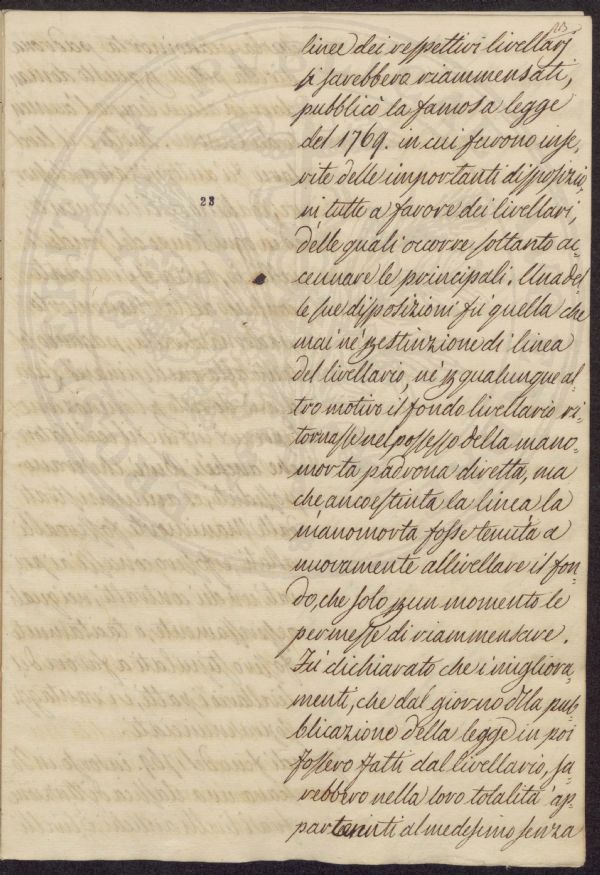 113
linee dei respettivi livellarj
si sarebbero riammensati,
pubblicò la famosa legge
del 1769. in cui furono inse,
rite delle importanti disposizio,
ni tutte a favore dei livellari,
delle quali occorre soltanto ac=
cennare le principali. Una del
le sue disposizioni fù quella che
mai nè p estinzione di linea
del livellario, nè p qualunque al=
tro motivo il fondo livellario ri=
tornasse nel possesso della mano=
morta padrona diretta, ma
che anco estinta la linea la
manomorta fosse tenuta a
nuovamente allivellare il fon=
do, che solo p un momento le
permesse di riammensare.
Fù dichiarato che i migliora=
menti, che dal giorno della pub=
blicazione della legge in poi
fossero fatti dal livellario, sa=
rebbero nella loro totalità ap=
partenuti al medesimo senza
23